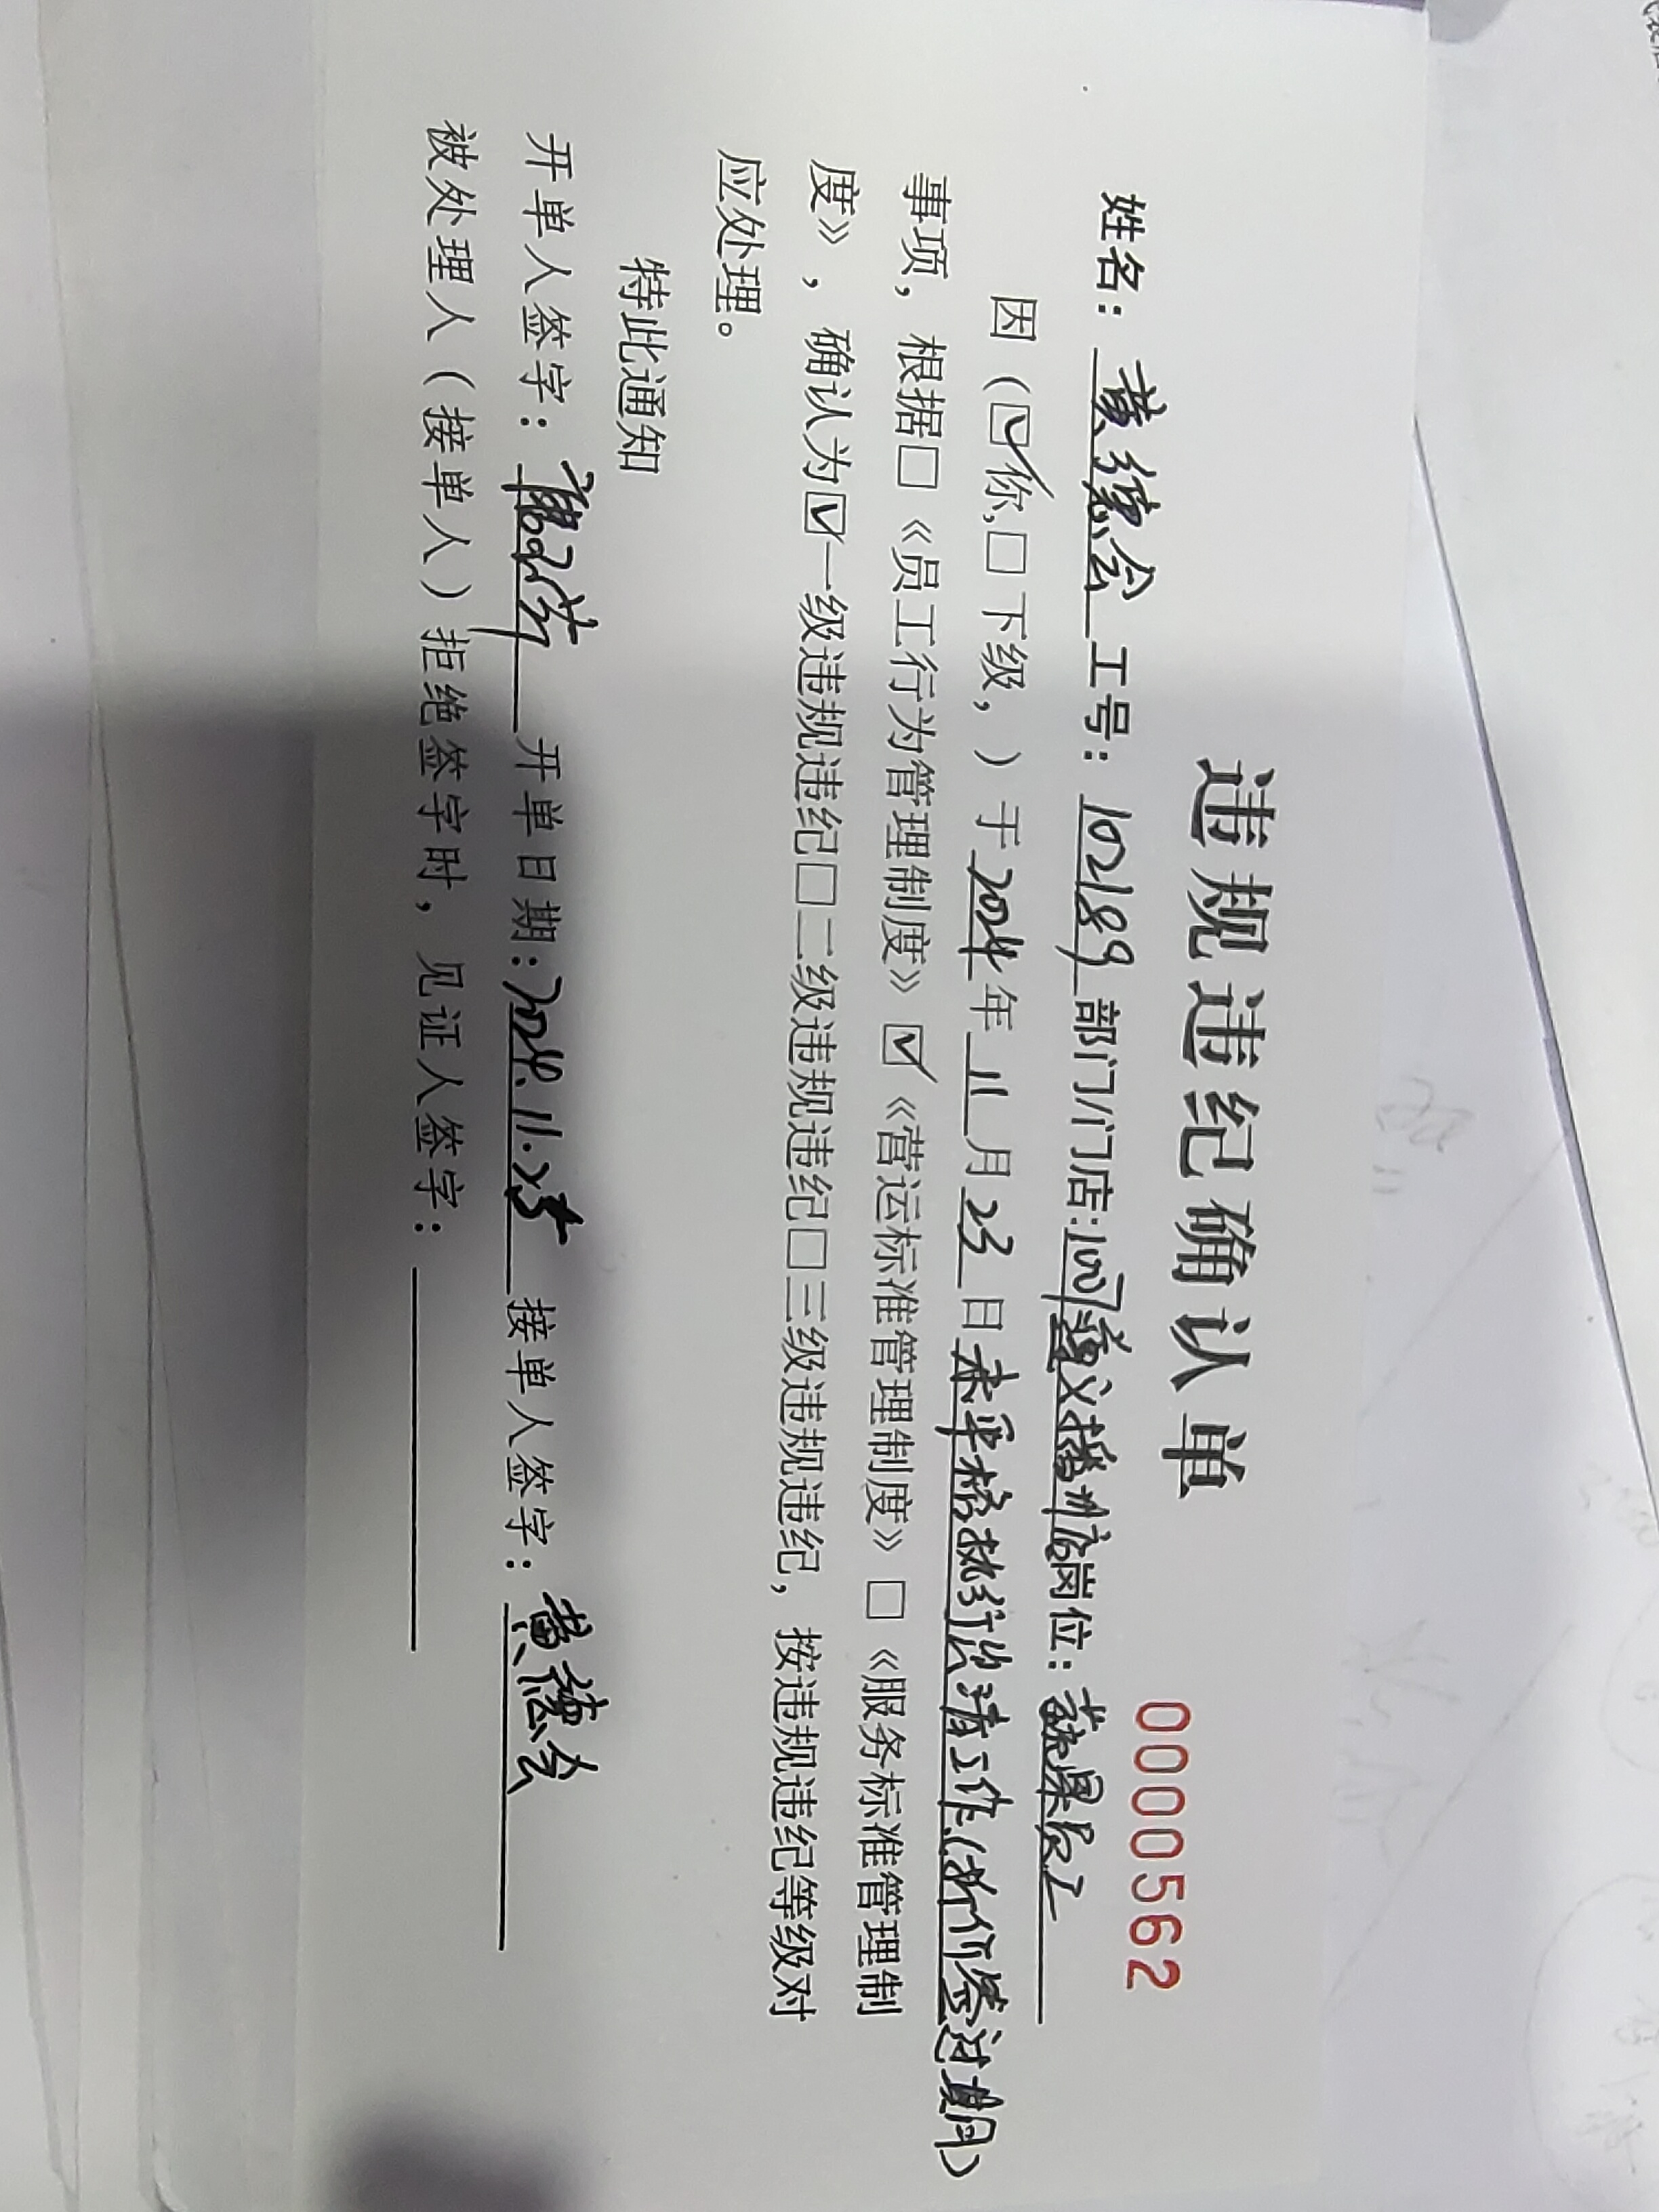 违规违纪确认单
00000562
姓名：黄德会 工号：102189 部门/门店：1007遵义播州店 岗位：蔬果员工
因（☑你，□下级，）于2024年11月23日未严格执行日清工作（折价签过期）
事项，根据□《员工行为管理制度》☑《营运标准管理制度》□《服务标准管理制
度》，确认为☑一级违规违纪□二级违规违纪□三级违规违纪，按违规违纪等级对
应处理。
特此通知
开单人签字： 开单日期：2024.11.25 接单人签字：黄德会
被处理人（接单人）拒绝签字时，见证人签字：